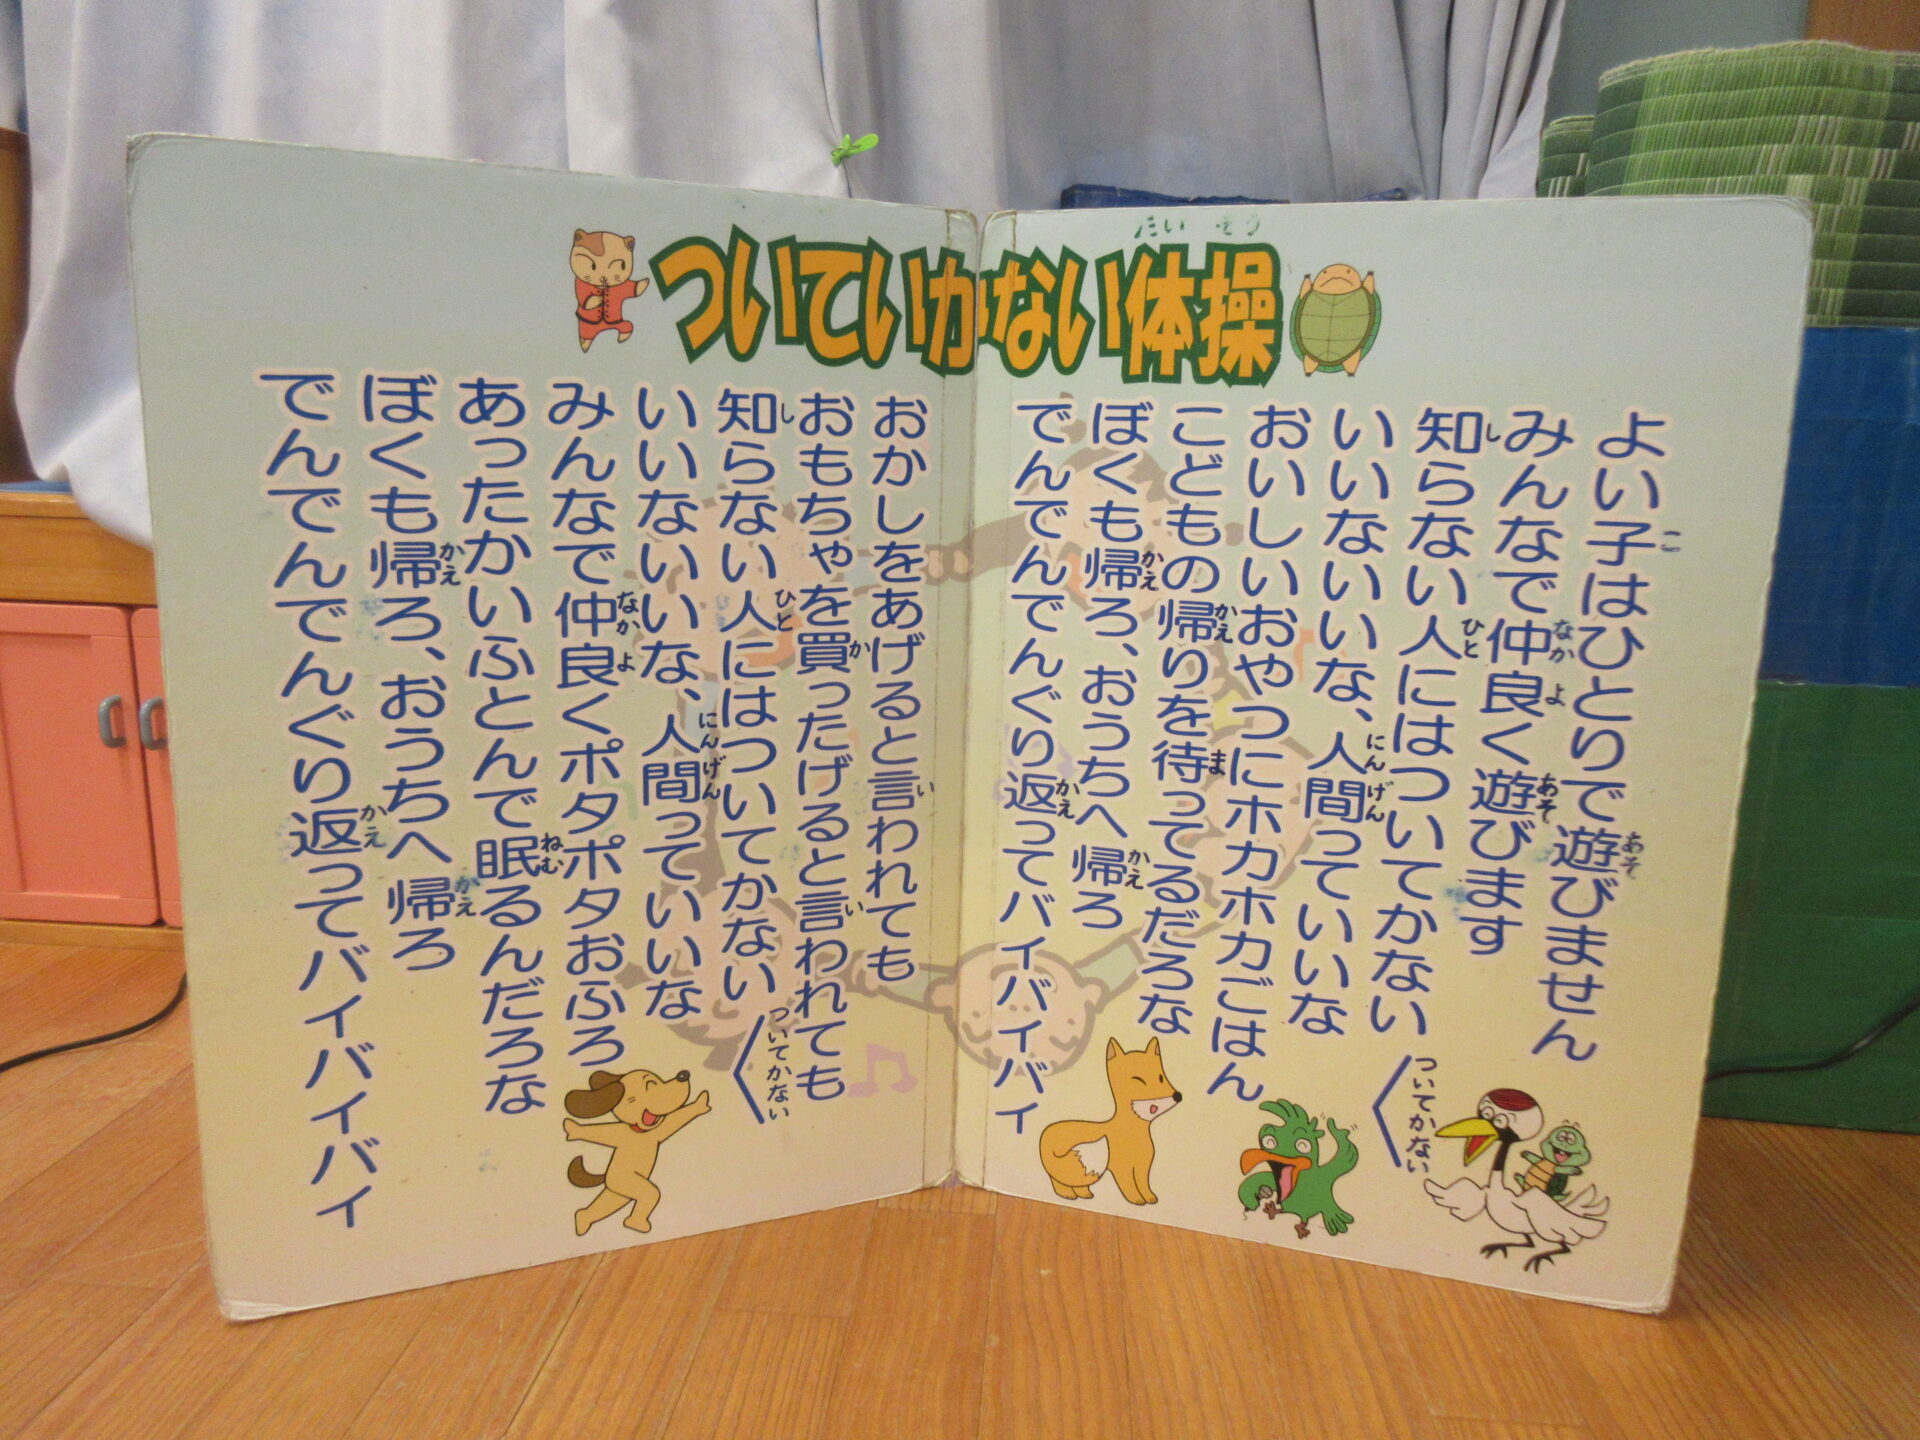 ついていかない体操
たいそう
よい子はひとりで遊びません
みんなで仲良く遊びます
知らない人にはついてかない
ついてかない
いいないいな、人間っていいな
おいしいおやつにホカホカごはん
こどもの帰りを待ってるだろな
ぼくも帰ろ、おうちへ帰ろ
でんでんでんでんぐり返ってバイバイバイ
おかしをあげると言われても
おもちゃを買ったげると言われても
知らない人にはついてかない
ついてかない
いいないいな、人間っていいな
みんなで仲良くポタポタおふろ
あったかいふとんで眠るんだろな
ぼくも帰ろ、おうちへ帰ろ
でんでんでんでんぐり返ってバイバイバイ